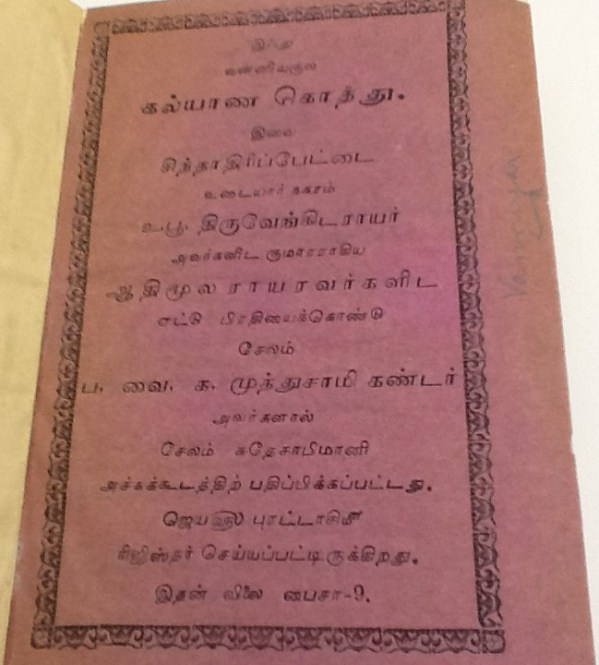 இந்து
வன்னியகுல
கல்யாண கொத்து.
இவை
சிந்தாதிரிப்பேட்டை
உடையார் நகரம்
உ.பூ. திருவேங்கிடராயர்
அவர்களிட குமாரராகிய
ஆதிமூலராயரவர்களிட
எட்டு பிரதியைக்கொண்டு
சேலம்
ப. வை. க. முத்துசாமி கண்டர்
அவர்களால்
சேலம் சுதேசாபிமானி
அச்சுக்கூடத்திற் பதிப்பிக்கப்பட்டது.
ஜெய புரட்டாசி
ரிஜிஸ்தர் செய்யப்பட்டிருக்கிறது.
இதன் விலை பைசா-9.